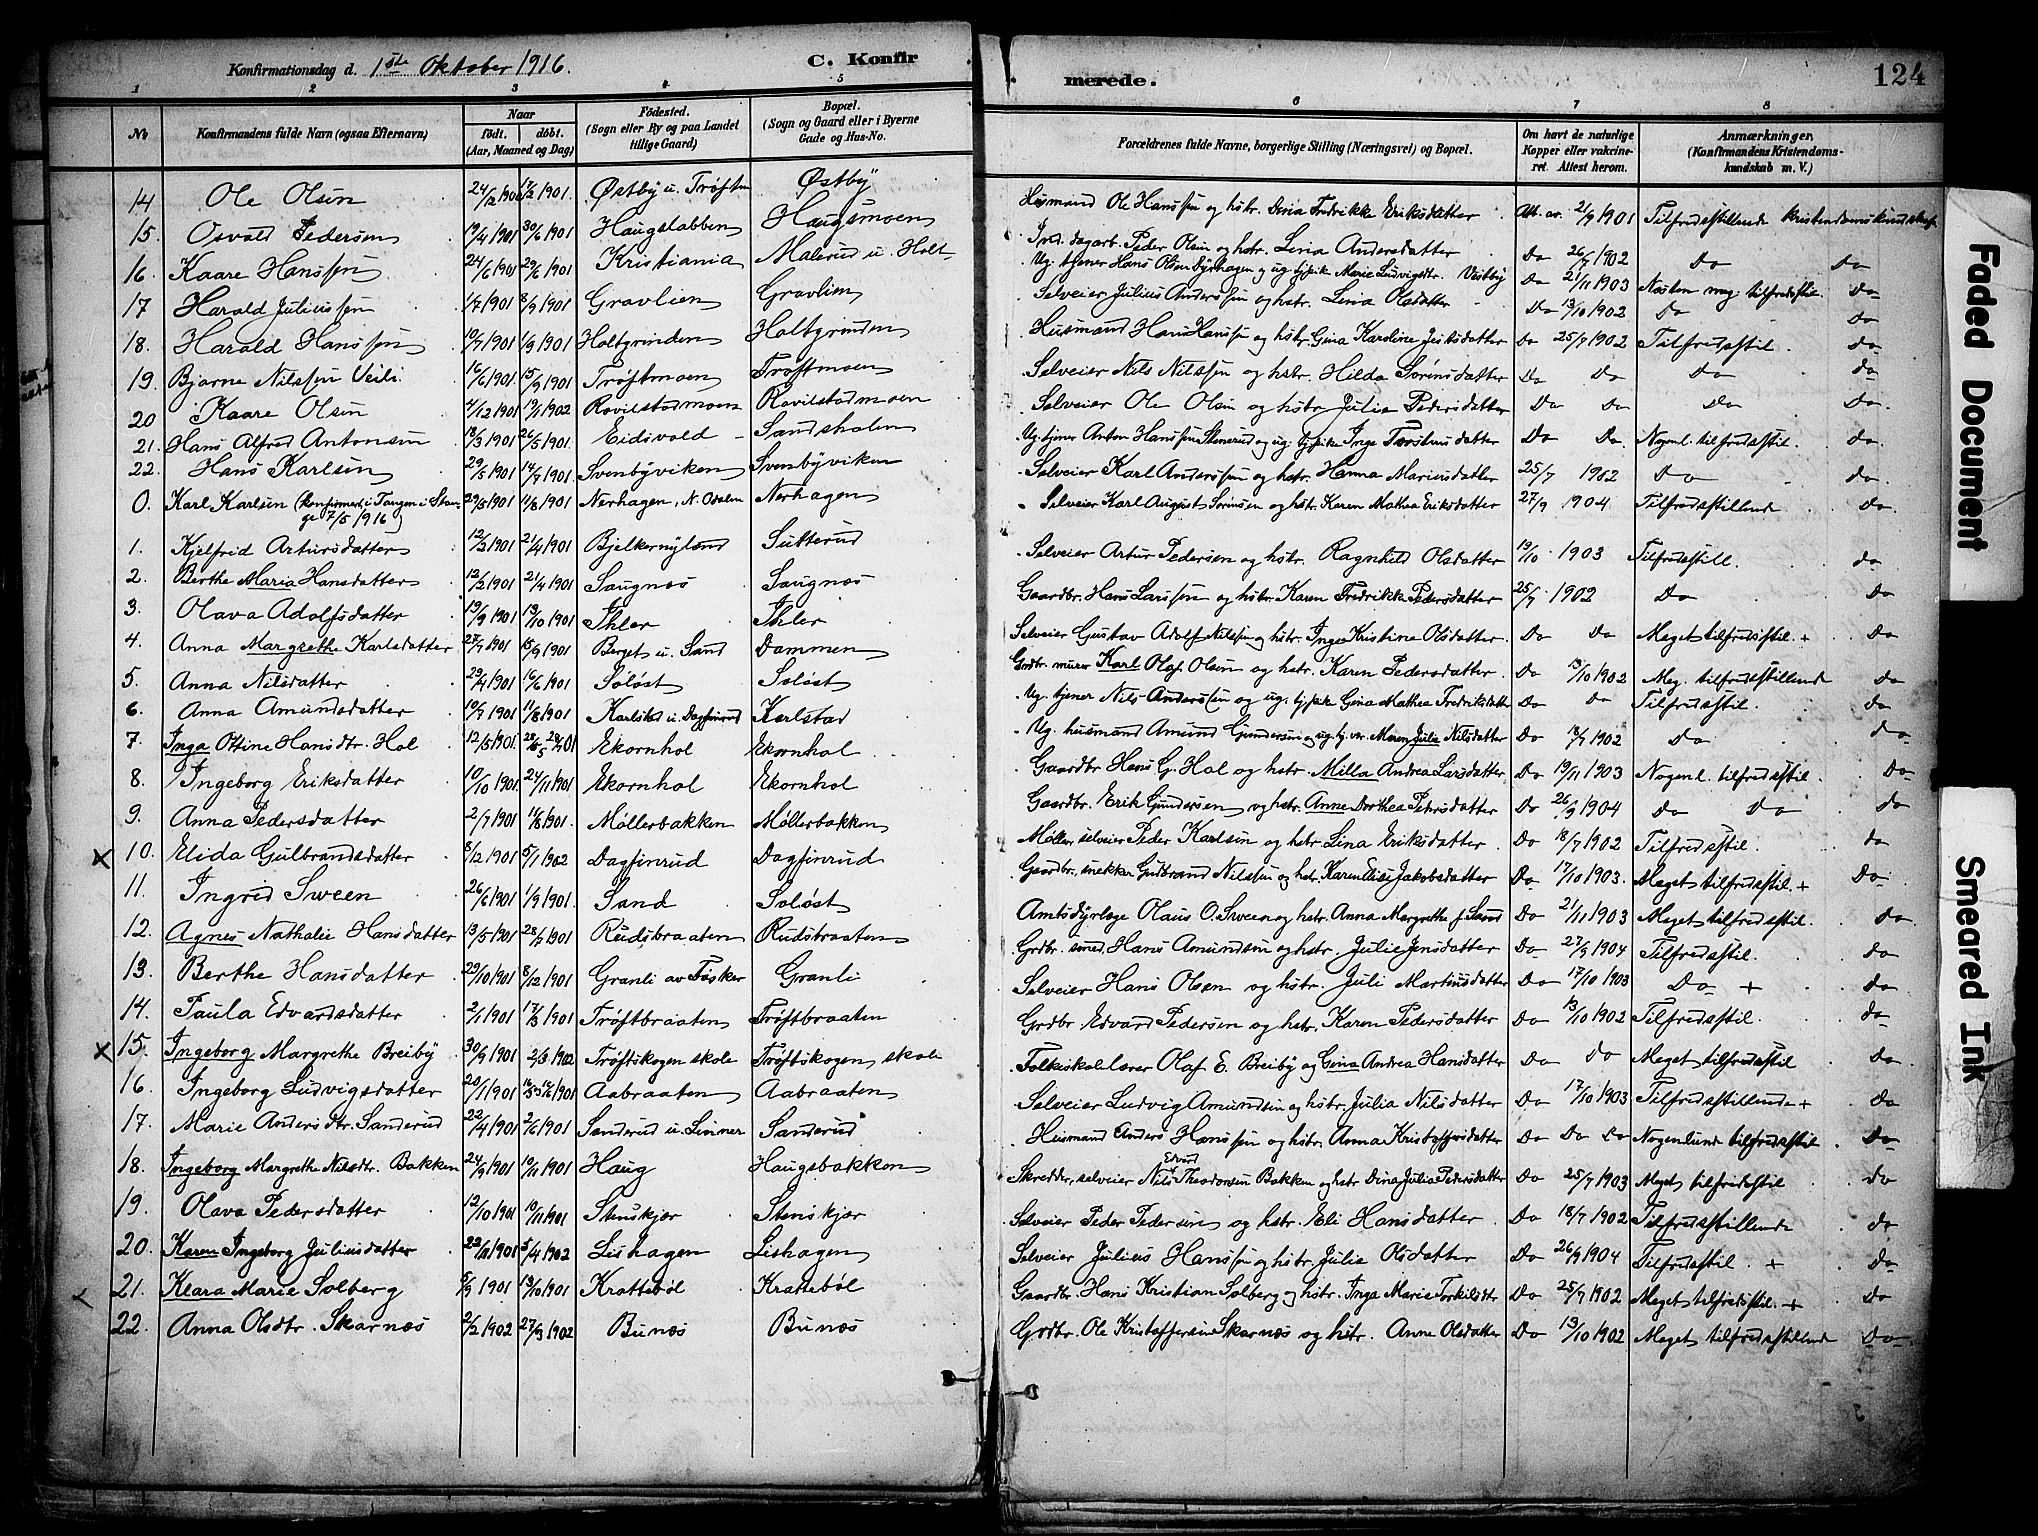 Konfirmationsdag d. 1ste Oktober 1916. C. Konfir merede. 124
1 2 3 4 5 6 7 8
No Konfirmandens fulde Navn (ogsaa Efternavn) Naar født. døbt. (Aar, Maaned og Dag) Fødested. (Sogn eller By og paa Landet tillige Gaard) Bopæl. (Sogn og Gaard eller i Byerne Gade og Hus-No. Forældrenes fulde Navne, borgerlige Stilling (Næringsvei) og Bopæl. Om havt de naturlige Kopper eller vaccineret. Attest herom. Anmærkninger. (Konfirmandens Kristendomskundskab m. V.)
14 Ole Olsen 24/2 1901 17/3 1901 Østby u. Trøften Østby Husmand Ole Hanssen og hstr. Dina Fredrikke Eriksdatter Att. av. 21/9 1901 Tilfredsstillende kristendomskundskap
15. Osvald Pedersen 19/4 1901 30/6 1901 Haugslabben Haugsmoen Ind. dagarb. Peder Olsen og hstr. Lina Andersdatter Do 26/9 1902 Do Do
16. Kaare Hanssen 24/6 1901 29/6 1901 Kristiania Malerud u. Holt Ug. tjener Hans Olsen Byrhagen og ug. tj.pike Marie Ludvigsdtr. Vestby Do 21/11 1903 Næsten meg. tilfredsstil. Do
17 Harald Juliussen 1/7 1901 8/9 1901 Gravlien Gravlien Selveier Julius Anderssen og hstr. Lina Olsdatter Do 13/10 1902 Do Do
18. Harald Hanssen 10/7 1901 1/9 1901 Holtgrinden Holtgrinden Husmand Hans Hanssen og hstr. Gina Karoline Jensdatter Do 25/7 1902 Tilfredsstil. Do
19. Bjarne Nilssen Veili 16/6 1901 15/9 1901 Trøftmoen Trøftmoen Selveier Nils Nilssen og hstr. Hilda Sørensdatter Do Do Do Do
20 Kaare Olsen 4/12 1901 19/1 1902 Rovilstadmoen Rovilstadmoen Selveier Ole Olsen og hstr. Julia Pedersdatter Do Do Do Do.
21. Hans Alfred Antonsen 18/3 1901 26/5 1901. Eidsvold Sandsholen Ug. tjener Anton Hanssen Stenerud og ug. tj.pike Inga Torstensdatter Do Do Nogenl. tilfredsstil. do.
22. Hans Karlsen 29/5 1901 14/7 1901. Svenbyviken Svenbyviken Selveier Karl Anderssen og hstr. Hanna Mariusdatter 25/7 1902 Do do.
0. Karl Karlsen (Konfirmert i Tangen i Stange 7/5 1916) 29/5 1901 11/8 1901 Nerhagen, N. Odalen Nerhagen Selveier Karl August Sørensen og hstr. Karen Mathea Eriksdatter 27/9 1904 Tilfredsstillende do.
1. Kjelfrid Artursdatter 12/3 1901 21/4 1901 Bjelkernyland Sutterud Selveier Artur Pedersen og hstr. Ragnhild Olsdatter 19/10 1903 Tilfredsstill. do
2. Berthe Maria Hansdatter 12/2 1901 21/4 1901 Saugnæs Saugnæs Gaardbr. Hans Larssen og hstr. Karen Fredrikke Pedersdatter 25/7 1902 Do Do
3. Olava Adolfsdatter 19/9 1901 13/10 1901 Ihler Ihler Selveier Gustav Adolf Nilssen og hstr. Inga Kristine Olsdatter. Do Do Meget tilfredsstil. + Do
4. Anna Margrethe Karlsdatter 27/7 1901 15/9 1901 Berget u. Sand Dammen Grdbr. murer Karl Olaf Olsen og hstr. Karen Pedersdatter Do 13/10 1902 Meg. tilfredsstillende do
5. Anna Nilsdatter 29/4 1901 16/6 1901 Soløst Soløst Ug. tjener Nils Anderssen og ug. tj.pike Gina Mathea Fredriksdatt Do Do Tilfredsstil. do
6. Anna Amundsdatter 19/7 1901 11/8 1901 Karlstad u. Dagfinrud Karlstad Ug. husmand Amund Gundersen og ug. tj. Maren Julie Nilsdatter Do 18/7 1902 Do do
7. Inga Ottine Hansdtr. Hol 12/5 1901. Ekornhol Ekornhol Gaardbr Hans G. Hol og hstr. Milla Andrea Larsdatter Do 19/11 1903 Nogenl. tilfredsstil. Do
8. Ingeborg Eriksdatter 10/10 1901 24/11 1901 Ekornhol Ekornhol Gaardbr. Erik Gundersen og hstr. Anne Dorthea Petersdatter Do 26/9 1904 Do Do do
9. Anna Pedersdatter 2/7 1901 11/8 1901. Møllerbakken Møllerbakken Møller, selveier Peder Karlsen og hstr. Lina Eriksdatter Do 18/7 1902 Tilfredsstil. do
X 10. Elida Gulbrandsdatter 8/12 1901 5/1 1902 Dagfinrud Dagfinrud Gaardbr. snekker Gudbrand Nilssen og hstr. Karen Elise Jakobsdatter Do 17/10 1903. Meget tilfredsstil + Do
11. Ingrid Sween 26/6 1901 1/9 1901. Sand Soløst Amtsdyrlæge Olaus O. Sween og hstr. Anna Margrethe f. Sand Do 21/11 1903 Meget tilfredsstil. do
12. Agnes Nathalie Hansdatter 13/5 1901 28/7 1901 Rudsbraaten Rudsbraaten Grdbr. smed Hans Amundsen og hstr. Julie Jensdatter Do 27/9 1904 Tilfredsstil. do
13. Berthe Hansdatter 29/10 1901 8/12 1901 Granli av Fosker Granli Selveier Hans Olsen og hstr. Juli Martinusdatter Do 17/10 1903 Do + do
14. Paula Edvardsdatter 2/1 1901 17/3 1901 Trøftbraaten Trøftbraaten Grdbr. Edvard Pedersen og hstr. Karen Pedersdatter Do 13/10 1902 Tilfredsstil. do
X 15. Ingeborg Margrethe Breiby 30/9 1901 2/3 1902 Trøftskogen skole Trøftskogen skole Folkeskolelærer Olaf E. Breiby og Gina Andrea Hansdatter Do Do Meget tilfredsstil Do
16. Ingeborg Ludvigsdatter 20/1 1901 Aabraaten Aabraaten Selveier Ludvig Amundsen og hstr. Julia Nilsdatter Do 17/10 1903 Tilfredsstillende + Do
17. Marie Andersdtr. Sanderud 22/4 1901 2/6 1901 Sanderud u. Linner Sanderud Husmand Anders Hanssen og hstr. Anna Kristoffersdatter Do Do Do Nogenlunde tilfredsstil. Do
18. Ingeborg Margrethe Nilsdtr. Bakken 24/9 1901 10/11 1901 Haug Haugsbakken Skrædder, selveier Nils Edvard Theodorsen Bakken og hstr Dina Julia Pedersdatter Do 25/7 1903 Meget tilfredsstil do
19. Olava Pedersdatter 12/10 1901 10/11 1901 Stenskjær Stenskjær Selveier Peder Pedersen og hstr. Eli Hansdatter Do 18/7 1902 Tilfredsstillende do
20. Karen Ingeborg Juliusdatter 22/11 1901 5/4 1902 Lishagen Lishagen Selveier Julius Hanssen og hstr Julie Olsdatter Do 26/9 1904 Tilfredsstil. + Do
21. Klara Marie Solberg 5/9 1901 13/10 1901 Krattebøl Krattebøl Gaardbr Hans Kristian Solberg og hstr. Inga Marie Torkilsdtr Do 25/7 1902 Meget tilfredsstil. + Do
22. Anna Olsdtr. Skarnæs 2/2 1902 27/3 1902 Bunæs Bunæs Grdbr. Ole Kristoffersen Skarnæs og hstr. Anne Olsdatter Do 13/10 1902 Meget tilfredsstillende Do
Faded Document
Smeared Ink